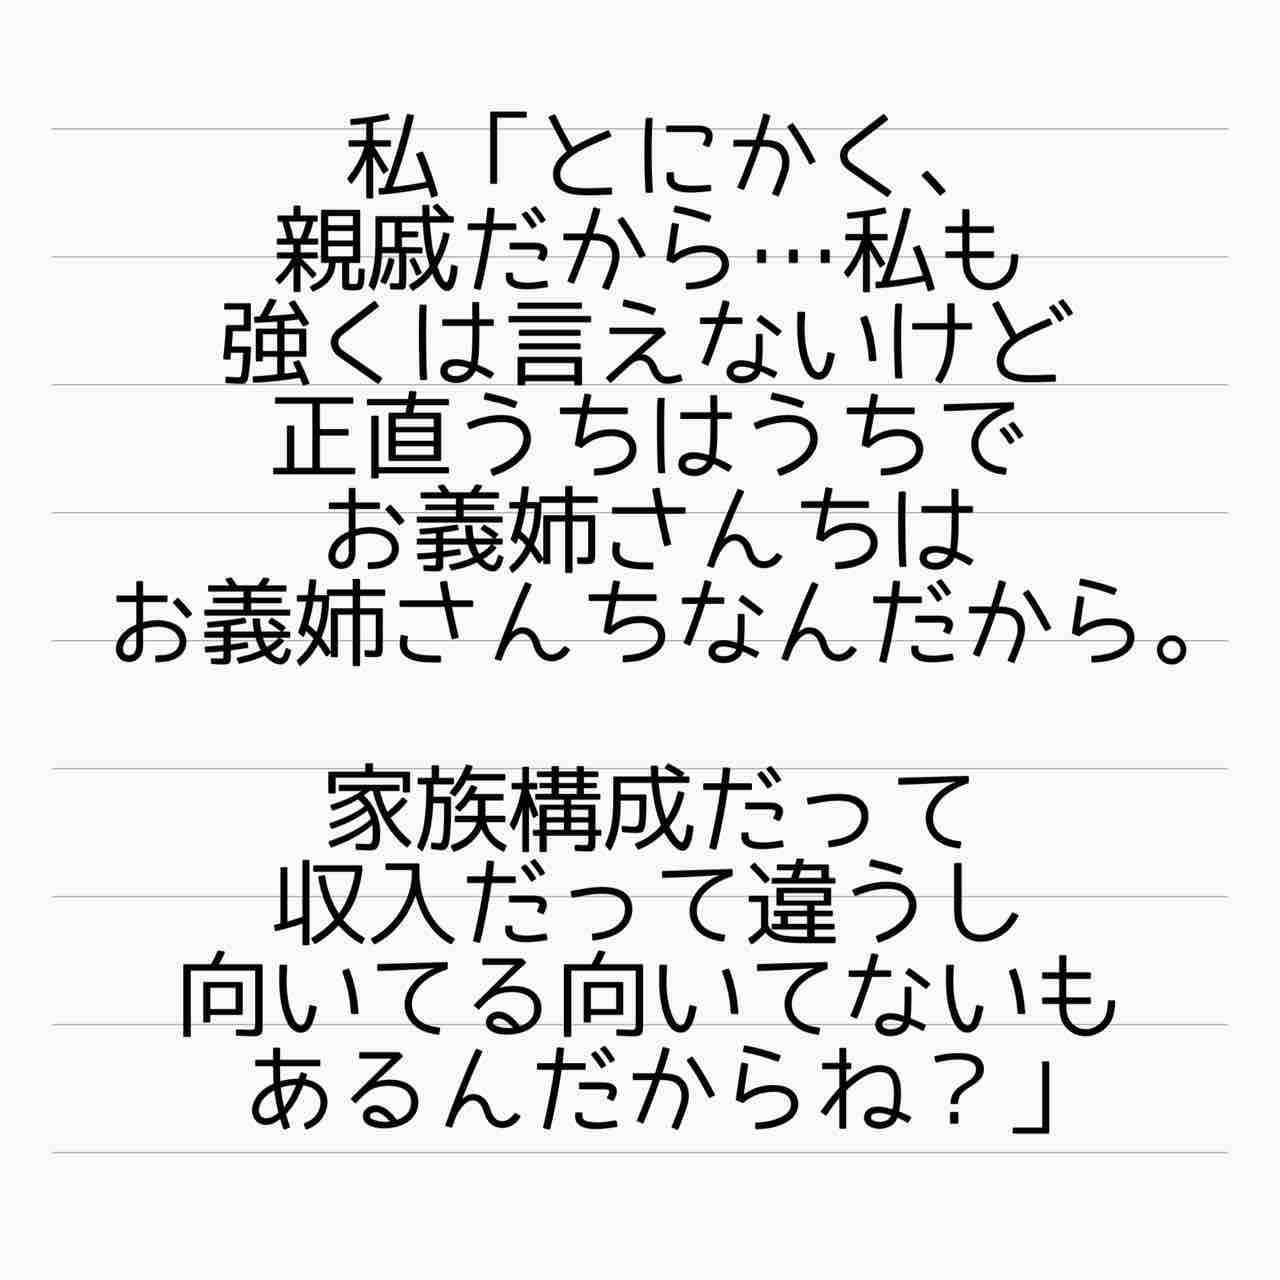 私「とにかく、
親戚だから…私も
強くは言えないけど
正直うちはうちで
お義姉さんちは
お義姉さんちなんだから。
家族構成だって
収入だって違うし
向いてる向いてないも
あるんだからね？」